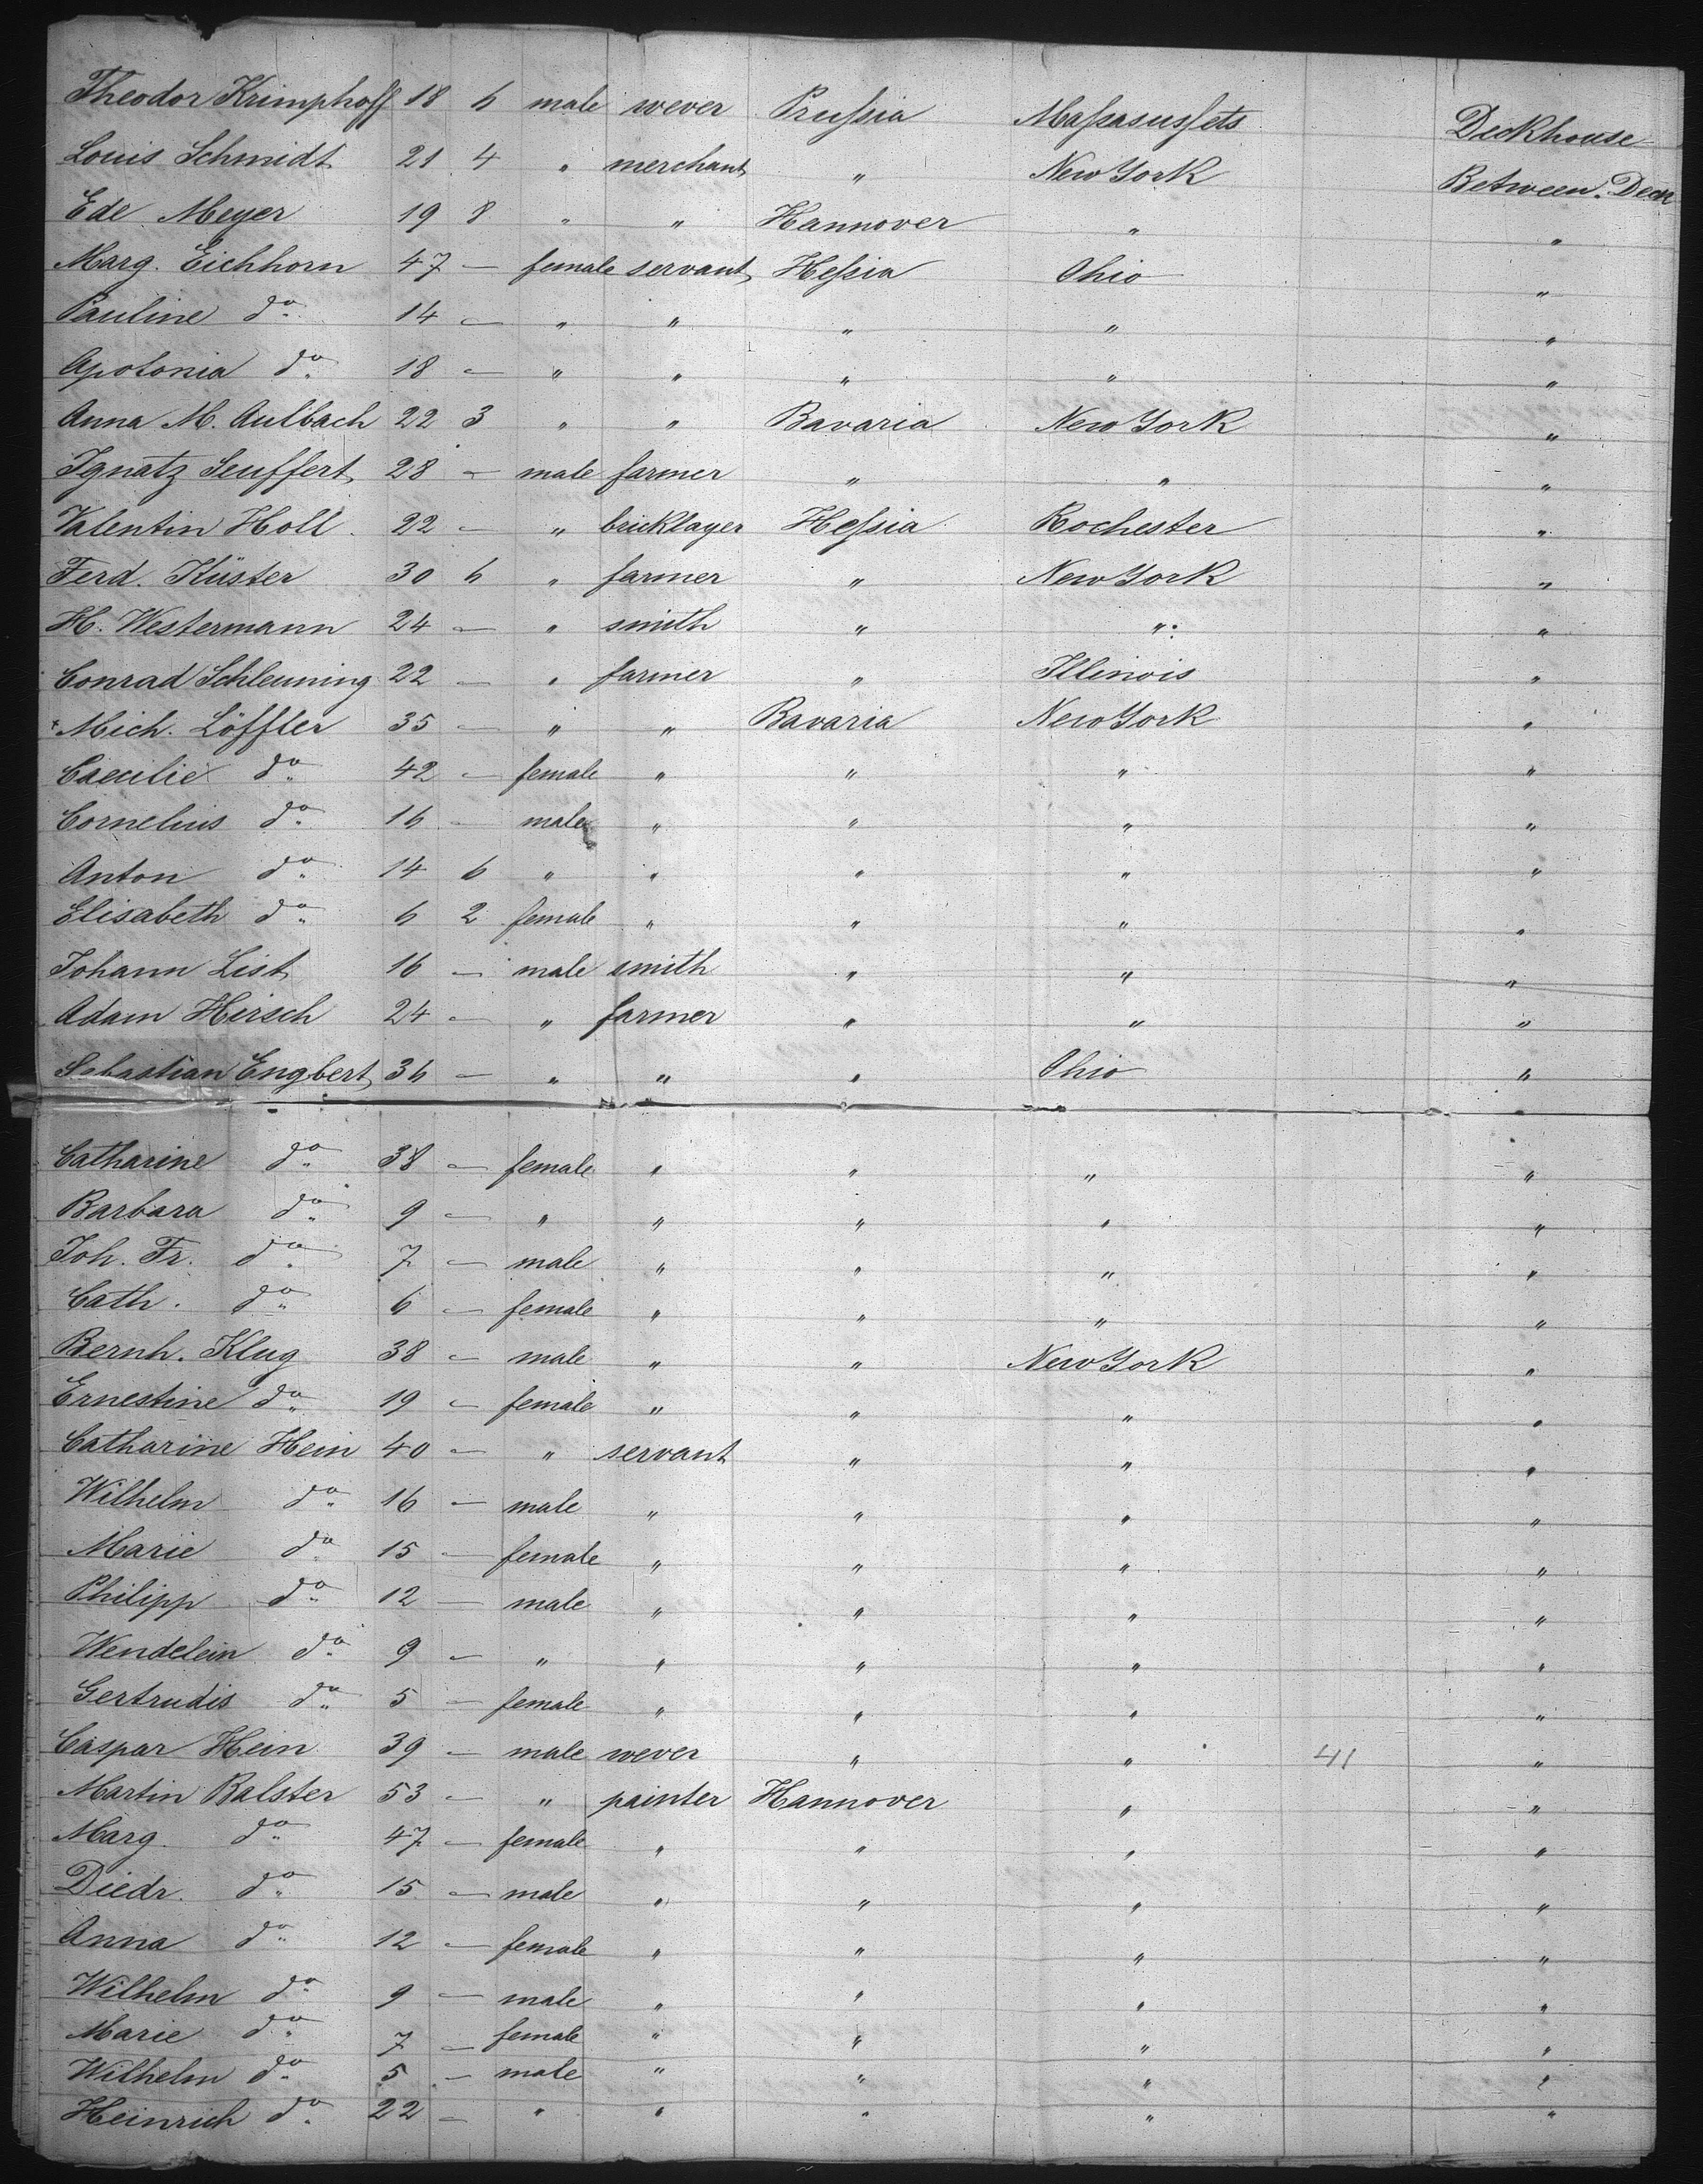 Theodor Krimphoff 18 6 male wever Prussia Massasussets Deckhouse
Louis Schmidt 21 4 " merchant " New York Between. Deck
Ede Meyer 19 8 " " Hannover " "
Marg. Eichhorn 47 — female servant Hessia Ohio "
Pauline do 14 — " " " " "
Apolonia do 18 — " " " " "
Anna M. Aulbach 22 3 " " Bavaria New York "
Ignatz Seuffert 28 — male farmer " " "
Valentin Holl 22 — " bricklayer Hessia Rochester "
Ferd. Küster 30 6 " farmer " New York "
H. Westermann 24 — " smith " " "
Conrad Schleuning 22 — " farmer " Illinois "
Mich. Löffler 35 — " " Bavaria New York "
Caecilie do 42 — female " " " "
Cornelius do 16 — male " " " "
Anton do 14 6 " " " " "
Elisabeth do 6 2 female " " " "
Johann List 16 — male smith " " "
Adam Hirsch 24 — " farmer " " "
Sebastian Engbert 36 — " " " Ohio "
Catharine do 38 — female " " " "
Barbara do 9 — " " " " "
Joh. Fr. do 7 — male " " " "
Cath. do 6 — female " " " "
Bernh. Klug 38 — male " " New York "
Ernestine do 19 — female " " " "
Catharine Hein 40 — " servant " " "
Wilhelm do 16 — male " " " "
Marie do 15 — female " " " "
Philipp do 12 — male " " " "
Wendelein do 9 — " " " " "
Gertrudis do 5 — female " " " "
Caspar Hein 39 — male wever " " 41 "
Martin Balster 53 — " painter Hannover " "
Marg. do 47 — female " " " "
Diedr. do 15 — male " " " "
Anna do 12 — female " " " "
Wilhelm do 9 — male " " " "
Marie do 7 — female " " " "
Wilhelm do 5 — male " " " "
Heinrich do 22 — " " " " "